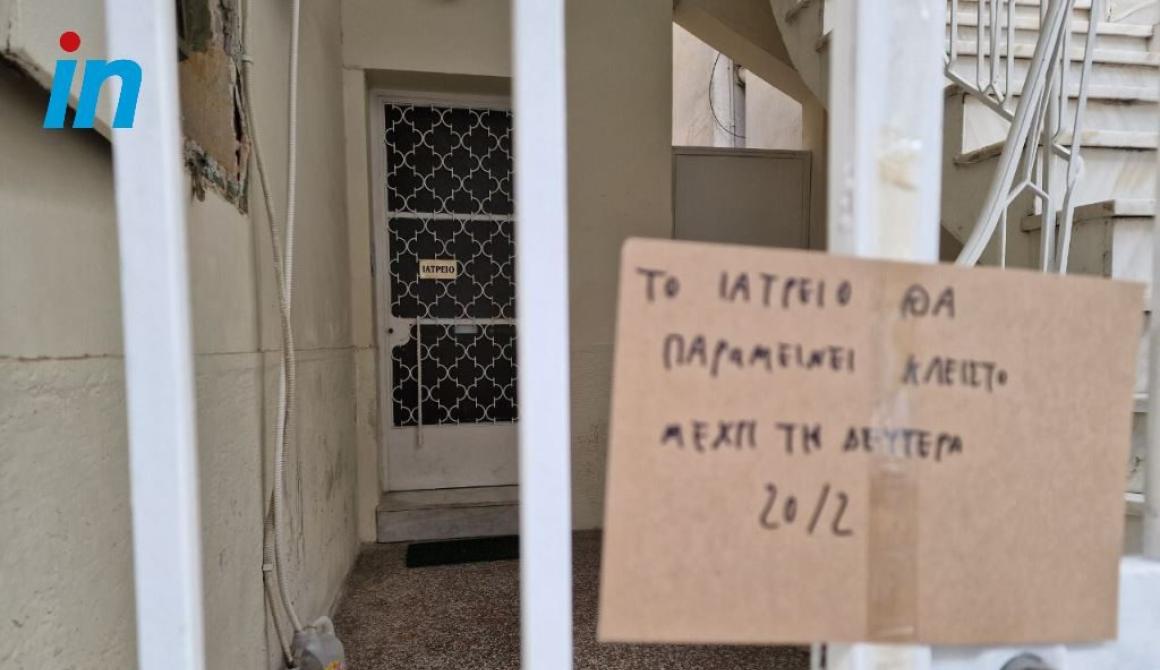 in
ΙΑΤΡΕΙΟ
ΤΟ ΙΑΤΡΕΙΟ ΘΑ
ΠΑΡαΜΕΙΝΕΙ ΚΛΕΙΣΤΟ
ΜΕΧΡΙ ΤΗ ΔΕΥΤΕΡΑ
20/2